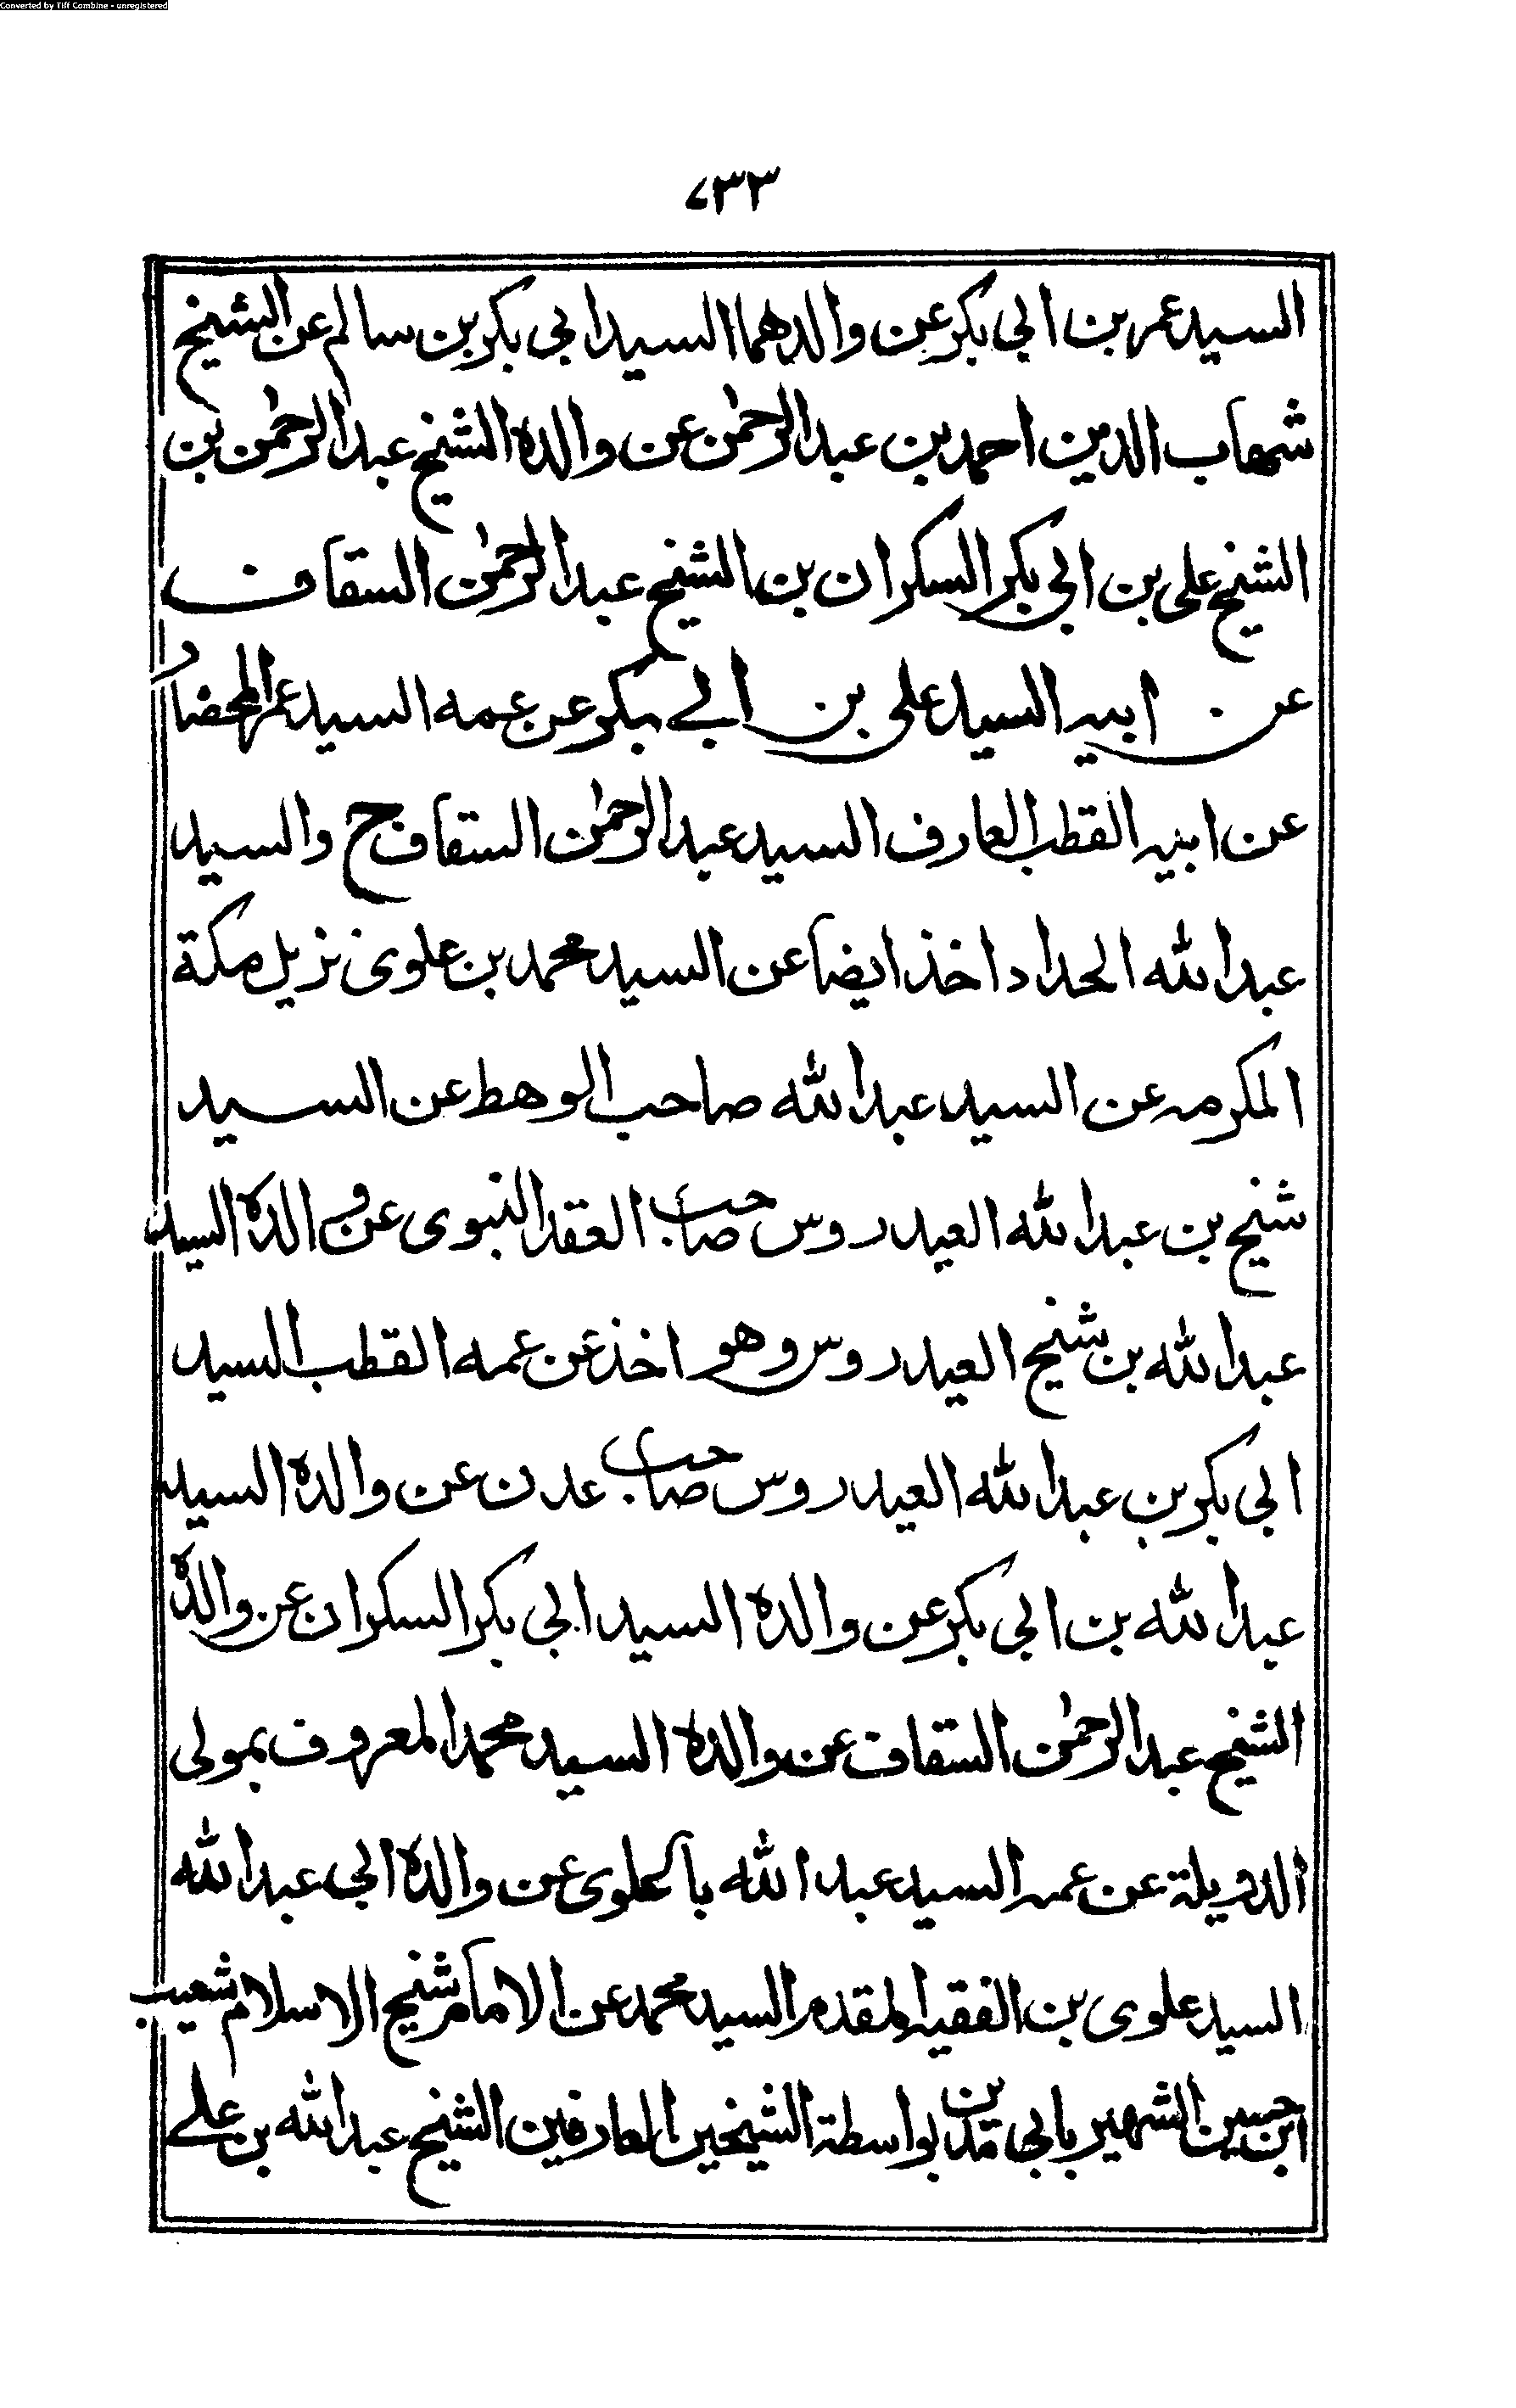 Converted by Tiff Combine - unregistered
٧٣٣
السيد عمر بن ابي بكر عن والدهما السيد ابي بكر بن سالم عن الشيخ
شهاب الدين احمد بن عبد الرحمٰن عن والده الشيخ عبد الرحمٰن بن
الشيخ علي بن ابي بكر السكران بن الشيخ عبد الرحمٰن السقاف
عن ابيه السيد علي بن ابي بكر عن عمه السيد عمر المحضار
عن ابيه القطب العارف السيد عبد الرحمٰن السقاف ح والسيد
عبد الله الحداد اخذ ايضا عن السيد محمد بن علوى نزيل مكة
المكرمه عن السيد عبد الله صاحب الوهط عن السيد
شيخ بن عبد الله العيدروس صاحب العقد النبوى عن والده السيد
عبد الله بن شيخ العيدروس وهو اخذ عن عمه القطب السيد
ابي بكر بن عبد الله العيدروس صاحب عدن عن والده السيد
عبد الله بن ابي بكر عن والده السيد ابي بكر السكران عن والده
الشيخ عبد الرحمٰن السقاف عن والده السيد محمد المعروف بمولى
الدويلة عن عمه السيد عبد الله باعلوى عن والده ابي عبد الله
السيد علوى بن الفقيه المقدم السيد محمد عن الامام شيخ الاسلام شعيب
ابن حسين الشهير بابي مدين بواسطة الشيخين العارفين الشيخ عبد الله بن علي